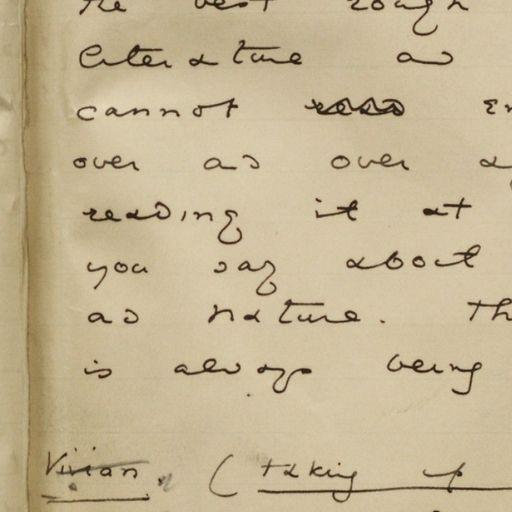 the best rough
literature as
cannot read en
over and over a
reading it at
you say about
as nature. Th
is always being
Vivian. (taking up